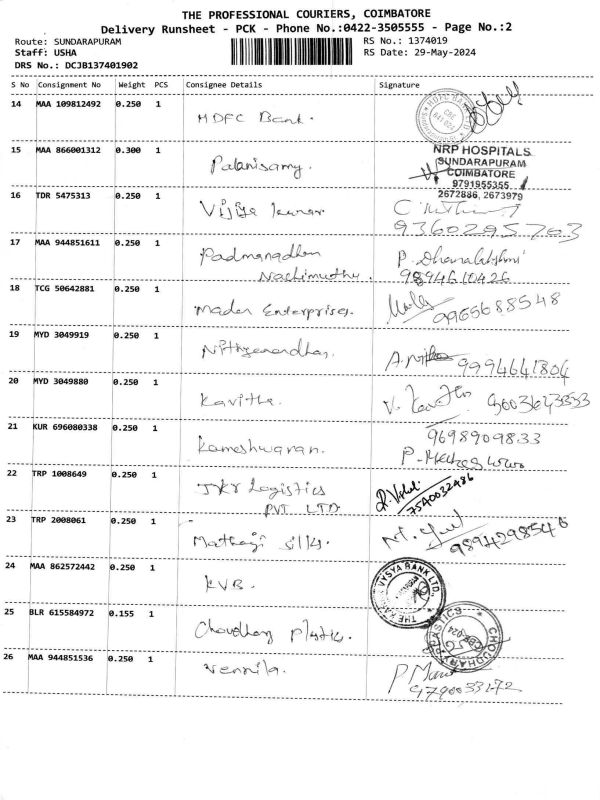 THE PROFESSIONAL COURIERS, COIMBATORE
Delivery Runsheet - PCK - Phone No.:0422-3505555 - Page No.:2
Route: SUNDARAPURAM RS No.: 1374019
Staff: USHA RS Date: 29-May-2024
DRS No.: DCJB137401902
S No Consignment No Weight PCS Consignee Details Signature
14 MAA 109812492 0.250 1 HDFC Bank.
15 MAA 866001312 0.300 1 Palanisamy. NRP HOSPITALS
SUNDARAPURAM
COIMBATORE
9791955355
2672886, 2673979
16 TDR 5475313 0.250 1 Vijiya kumar
9360295763
17 MAA 944851611 0.250 1 Padmanadhan P. Dhanalakshmi
Nachimuthu. 9894610426
18 TCG 50642881 0.250 1 Madan Enterprises. 9965688548
19 MYD 3049919 0.250 1 Nithyanandhan. 9994641804
20 MYD 3049880 0.250 1 Kavitha.
21 KUR 696080338 0.250 1 Kameshwaran. 9698909833
22 TRP 1008649 0.250 1 JKY Logistics
PVT LTD 7540032486
23 TRP 2008061 0.250 1 Mathaji silks. 9894298546
24 MAA 862572442 0.250 1 KVB. VYSYA BANK LTD.
25 BLR 615584972 0.155 1 Choudhary plastics. CHOUDHARY PLASTICS
26 MAA 944851536 0.250 1 Vennila.
9790033172